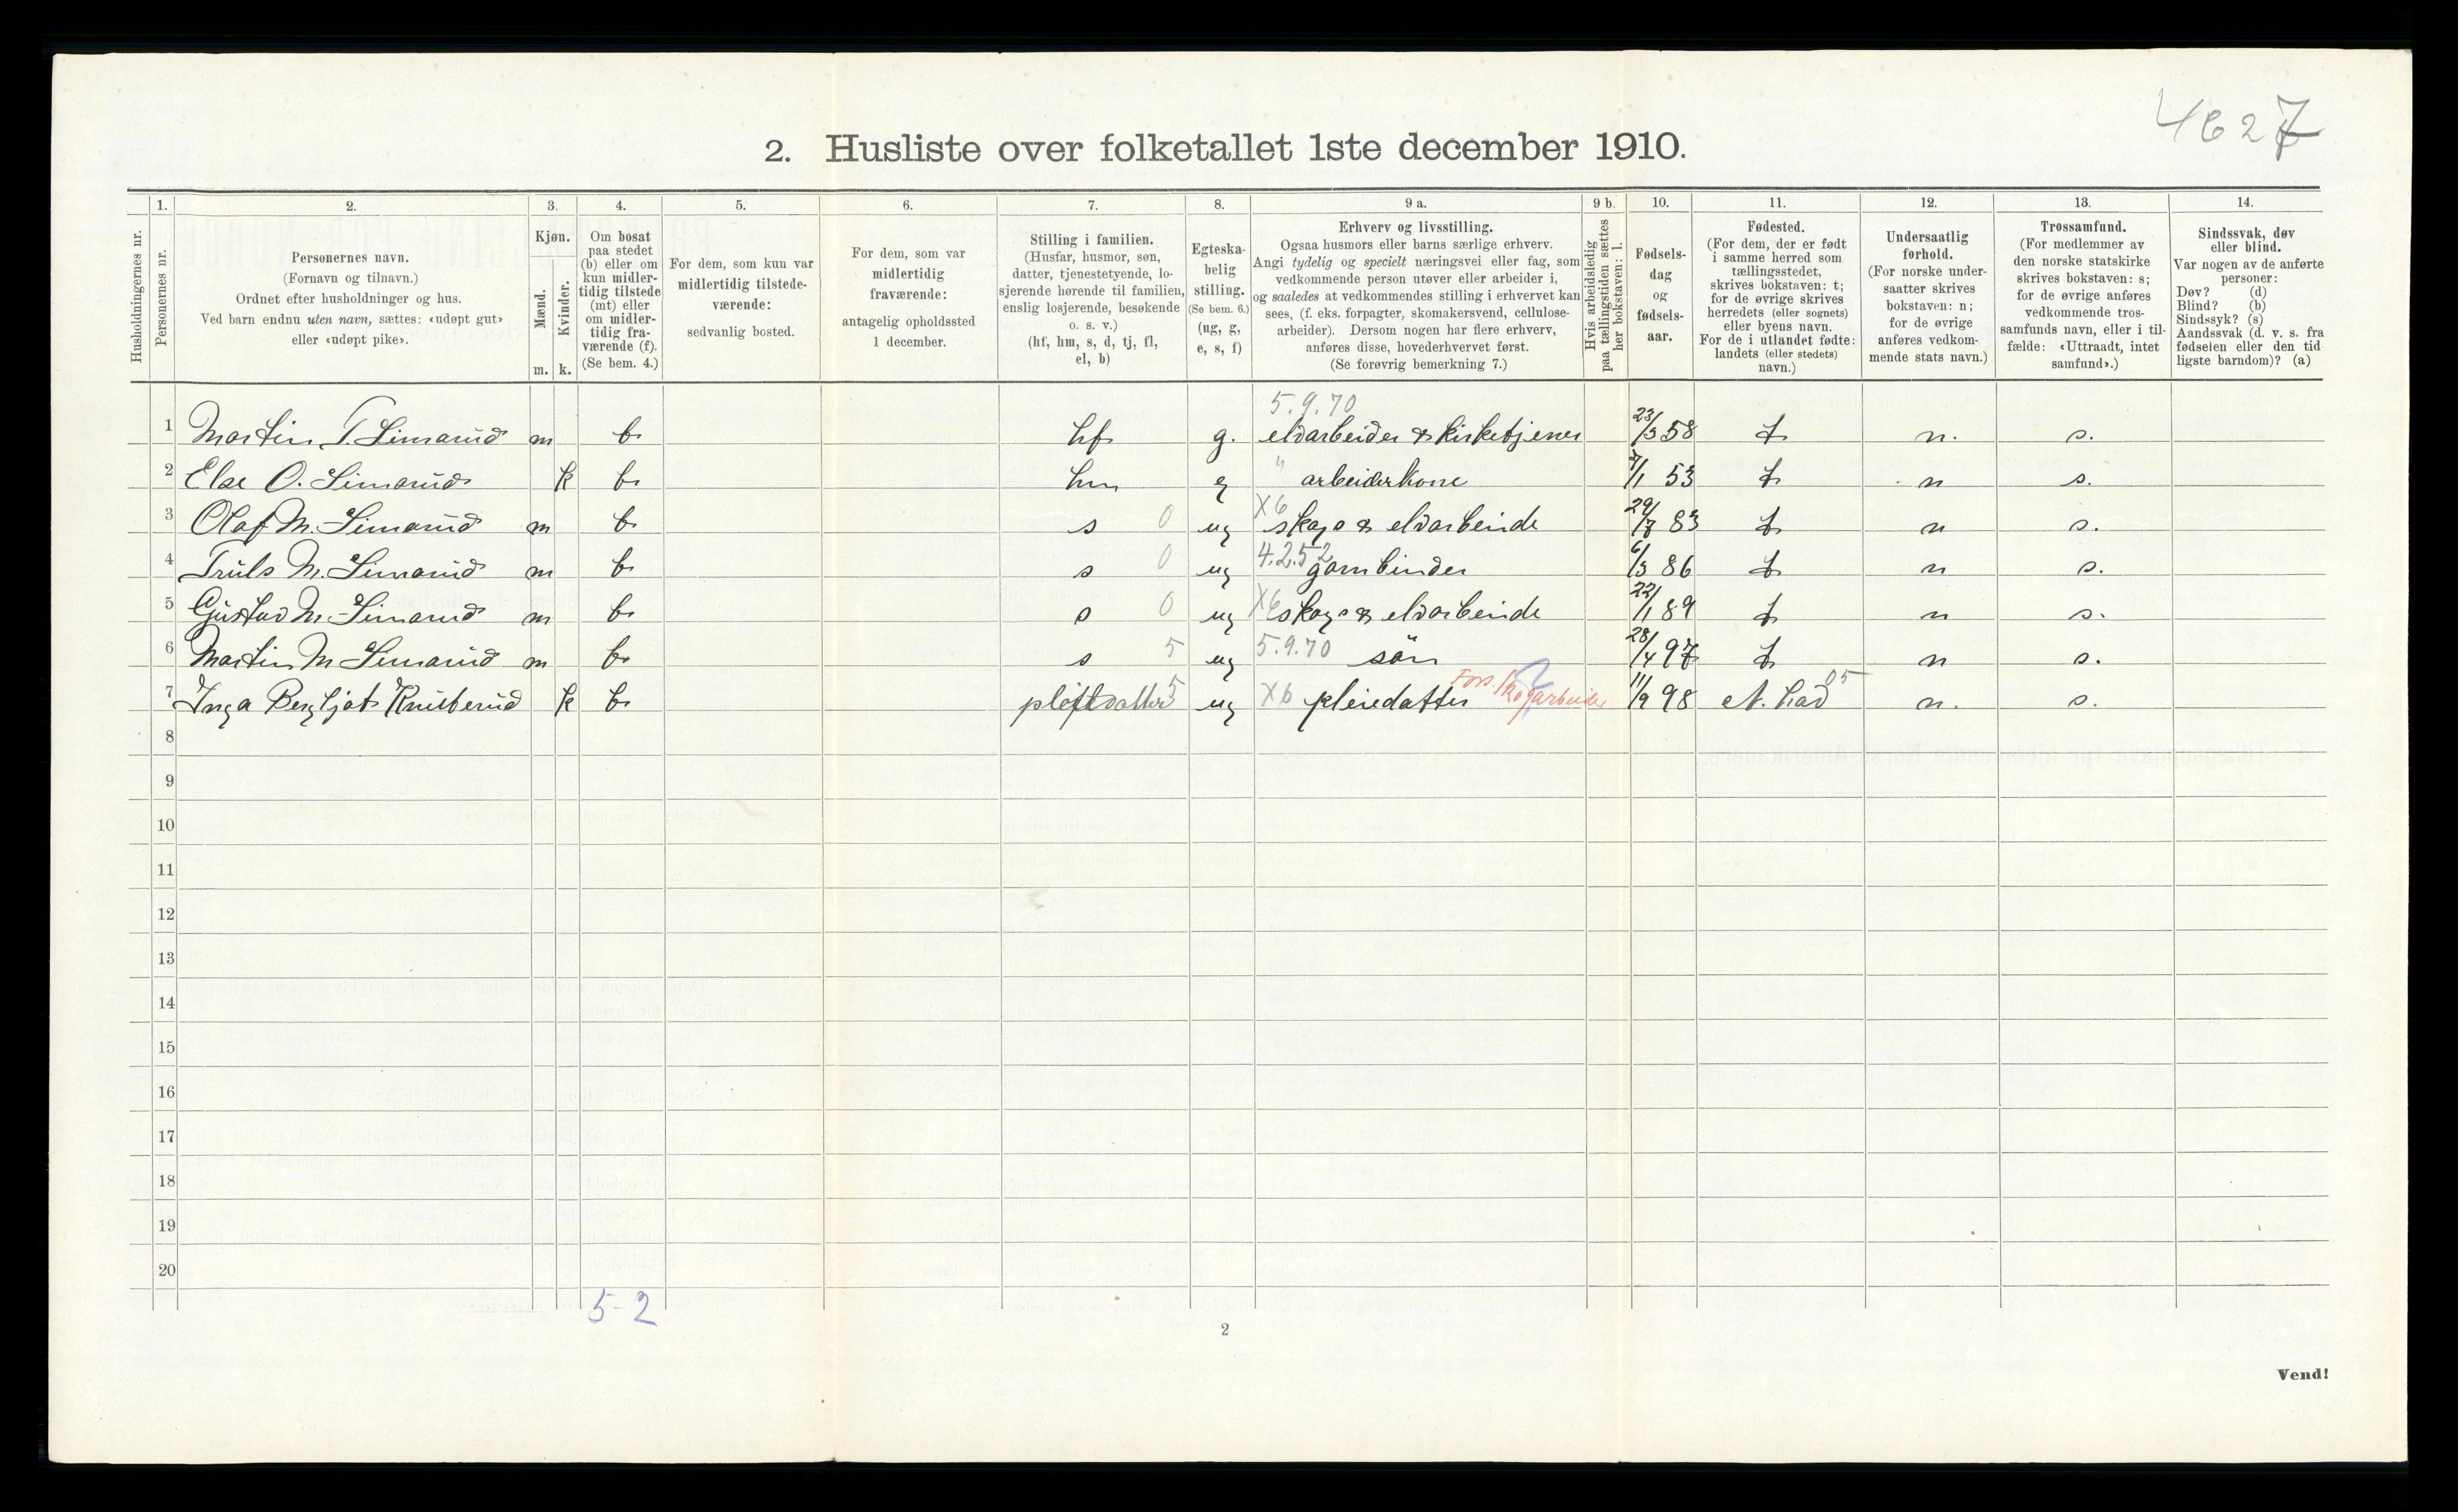 4627
2. Husliste over folketallet 1ste december 1910.
Husholdningernes nr.
1. Personernes nr.
2. Personernes navn. (Fornavn og tilnavn.) Ordnet efter husholdninger og hus. Ved barn endnu uten navn, sættes: «udøpt gut» eller «udøpt pike».
3. Kjøn. Mænd. m. Kvinder. k.
4. Om bosat paa stedet (b) eller om kun midlertidig tilstede (mt) eller om midlertidig fraværende (f). (Se bem. 4.)
5. For dem, som kun var midlertidig tilstedeværende: sedvanlig bosted.
6. For dem, som var midlertidig fraværende: antagelig opholdssted 1 december.
7. Stilling i familien. (Husfar, husmor, søn, datter, tjenestetyende, losjerende hørende til familien, enslig losjerende, besøkende o. s. v.) (hf, hm, s, d, tj, fl, el, b)
8. Egteskabelig stilling. (Se bem. 6.) (ug, g, e, s, f)
9 a. Erhverv og livsstilling. Ogsaa husmors eller barns særlige erhverv. Angi tydelig og specielt næringsvei eller fag, som vedkommende person utøver eller arbeider i, og saaledes at vedkommendes stilling i erhvervet kan sees, (f. eks. forpagter, skomakersvend, cellulosearbeider). Dersom nogen har flere erhverv, anføres disse, hovederhvervet først. (Se forøvrig bemerkning 7.)
9 b. Hvis arbeidsledig paa tællingstiden sættes her bokstaven: l.
10. Fødselsdag og fødselsaar.
11. Fødested. (For dem, der er født i samme herred som tællingsstedet, skrives bokstaven: t; for de øvrige skrives herredets (eller sognets) eller byens navn. For de i utlandet fødte: landets (eller stedets) navn.)
12. Undersaatlig forhold. (For norske undersaatter skrives bokstaven: n; for de øvrige anføres vedkommende stats navn.)
13. Trossamfund. (For medlemmer av den norske statskirke skrives bokstaven: s; for de øvrige anføres vedkommende trossamfunds navn, eller i tilfælde: «Uttraadt, intet samfund».)
14. Sindssvak, døv eller blind. Var nogen av de anførte personer: Døv? (d) Blind? (b) Sindssyk? (s) Aandssvak (d. v. s. fra fødselen eller den tidligste barndom)? (a)
5.9.70
1 Martin T. Simarud m b hf g. elvarbeider & kirketjener 23/3 58 t n. s.
2 Else O. Simarud k b hm g " arbeiderkone 7/1 53 t n s.
3 Olaf M. Simarud m b s 0 ug X6 skogs & elvarbeide 29/7 83 t n s.
4 Truls M. Simarud m b s 0 ug 4.2.52 garnbinder 6/3 86 t n s.
5 Gustav M. Simarud m b s 0 ug X6 skogs & elvarbeide 22/1 89 t n s.
6 Martin M Simarud m b s 5 ug 5.9.70 sön 28/4 97 t n s.
7 Inga Bergljot Knutserud k b pleiedatter 5 ug X6 pleiedatter Fors. skogarbeider 11/9 98 N. Lad 05 n. s.
8
9
10
11
12
13
14
15
16
17
18
19
20
5-2
2
Vend!